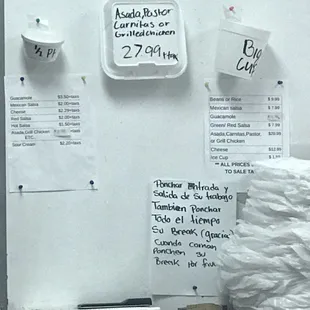 ½ Pt
Asada, Pastor
Carnitas or
Grilled chicken
27.99 +tax
Big
Cup
Guacamole $3.50+taxs
Mexican Salsa $2.00+taxs
Cheese $2.20+taxs
Red Salsa $2.00+taxs
Hot Salsa $1.50+taxs
Asada,Grill Chicken
ETC.
Sour Cream $2.20+taxs
Beans or Rice $ 9.99
Mexican salsa $ 7.99
Guacamole
Green/ Red Salsa $ 7.99
Asada,Carnitas,Pastor,
or Grill Chicken
Cheese $12.99
Ice Cup
** ALL PRICES
TO SALE TA
Ponchar Entrada y
Salida de Su trabajo
Tambien Ponchar
Todo el tiempo
Su Break (gracias
Cuando coman
Ponchen su
Break por